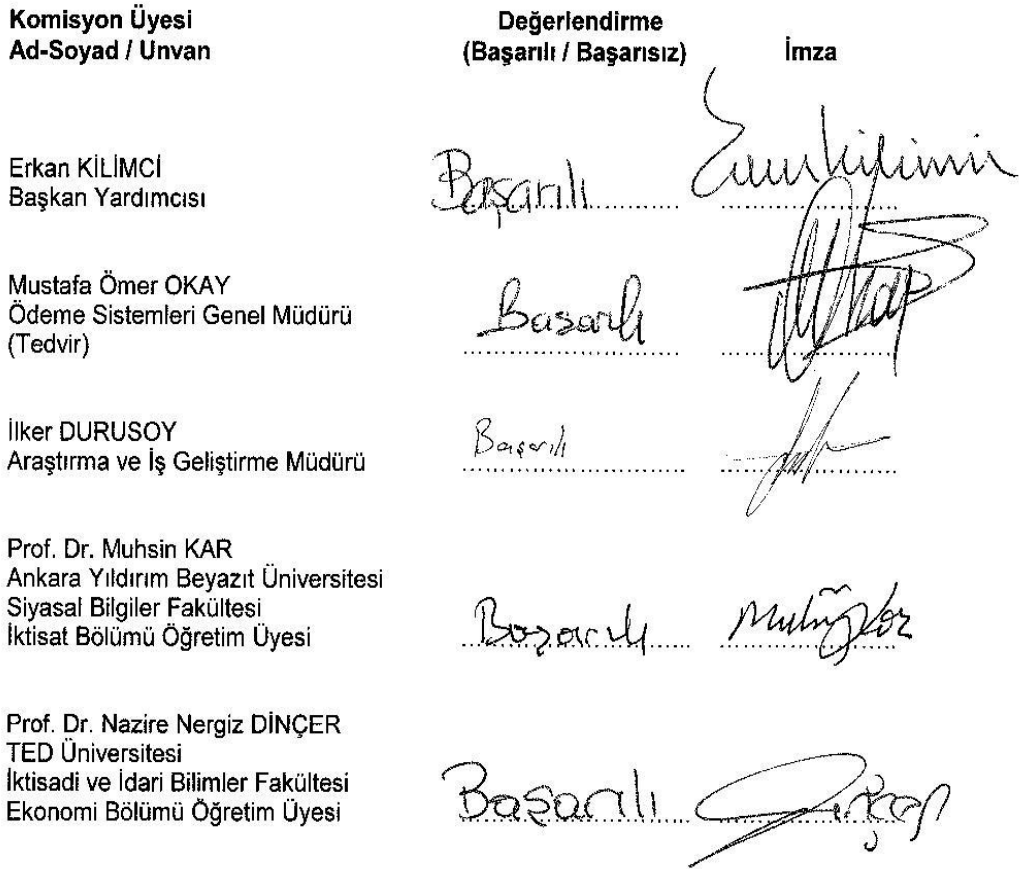 Komisyon Üyesi
Ad-Soyad / Unvan
Değerlendirme
(Başarılı / Başarısız)
İmza
Erkan KİLİMCİ
Başkan Yardımcısı
Başarılı
Mustafa Ömer OKAY
Ödeme Sistemleri Genel Müdürü
(Tedvir)
Basarılı
İlker DURUSOY
Araştırma ve İş Geliştirme Müdürü
Başarılı
Prof. Dr. Muhsin KAR
Ankara Yıldırım Beyazıt Üniversitesi
Siyasal Bilgiler Fakültesi
İktisat Bölümü Öğretim Üyesi
Başarılı
Prof. Dr. Nazire Nergiz DİNÇER
TED Üniversitesi
İktisadi ve İdari Bilimler Fakültesi
Ekonomi Bölümü Öğretim Üyesi
Başarılı